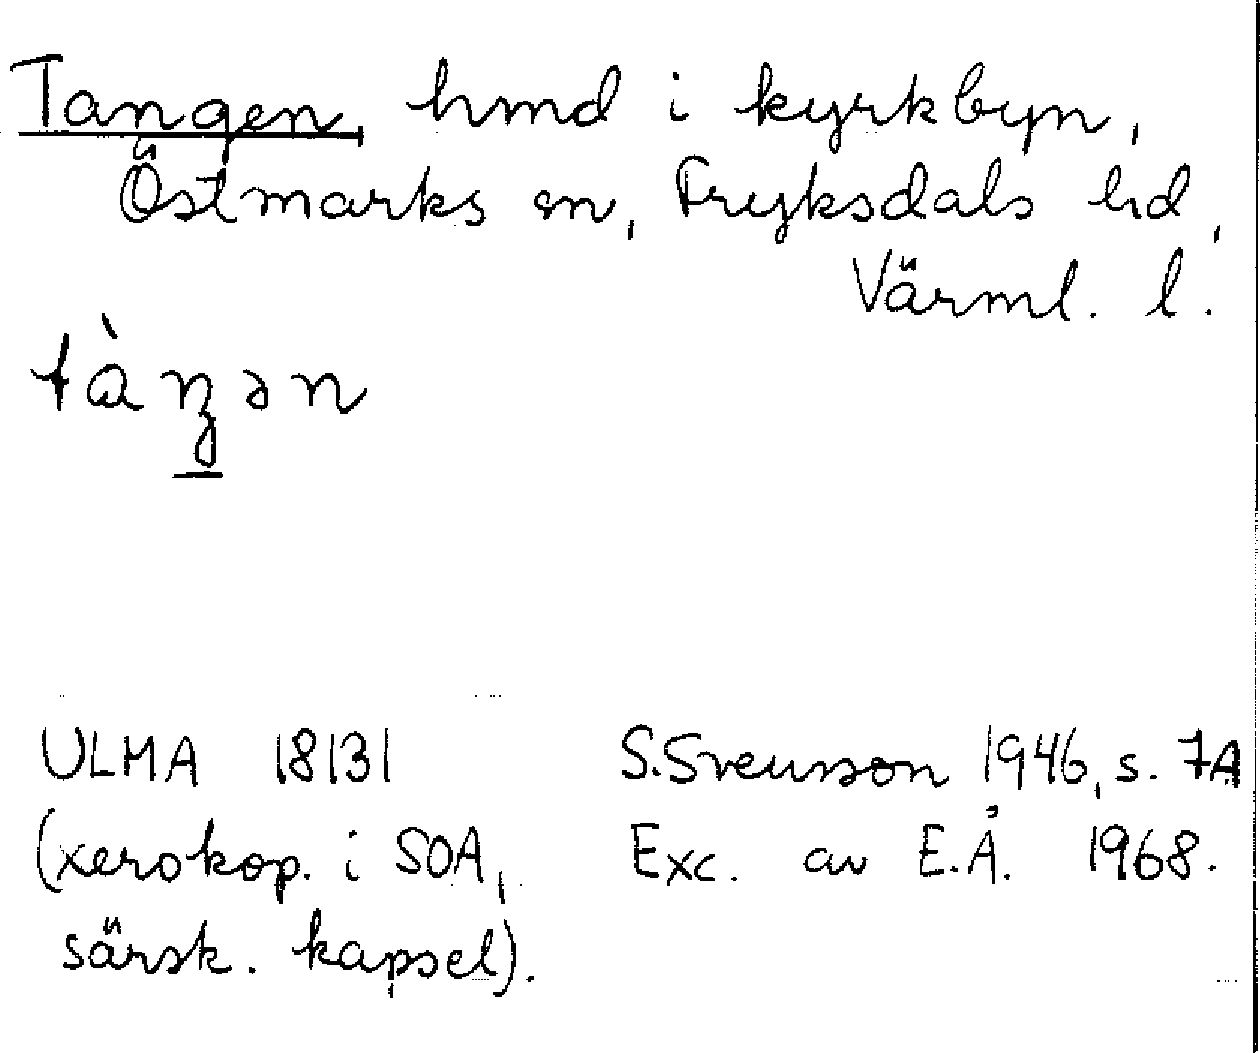 Tangen, hmd i kyrkbyn,
Östmarks sn, Fryksdals hd,
Värml. l.
tàŋən
ULMA 18131 S.Svensson 1946, s. 7A
(xerokop. i SOA, Exc. av E.Å. 1968.
särsk. kapsel).